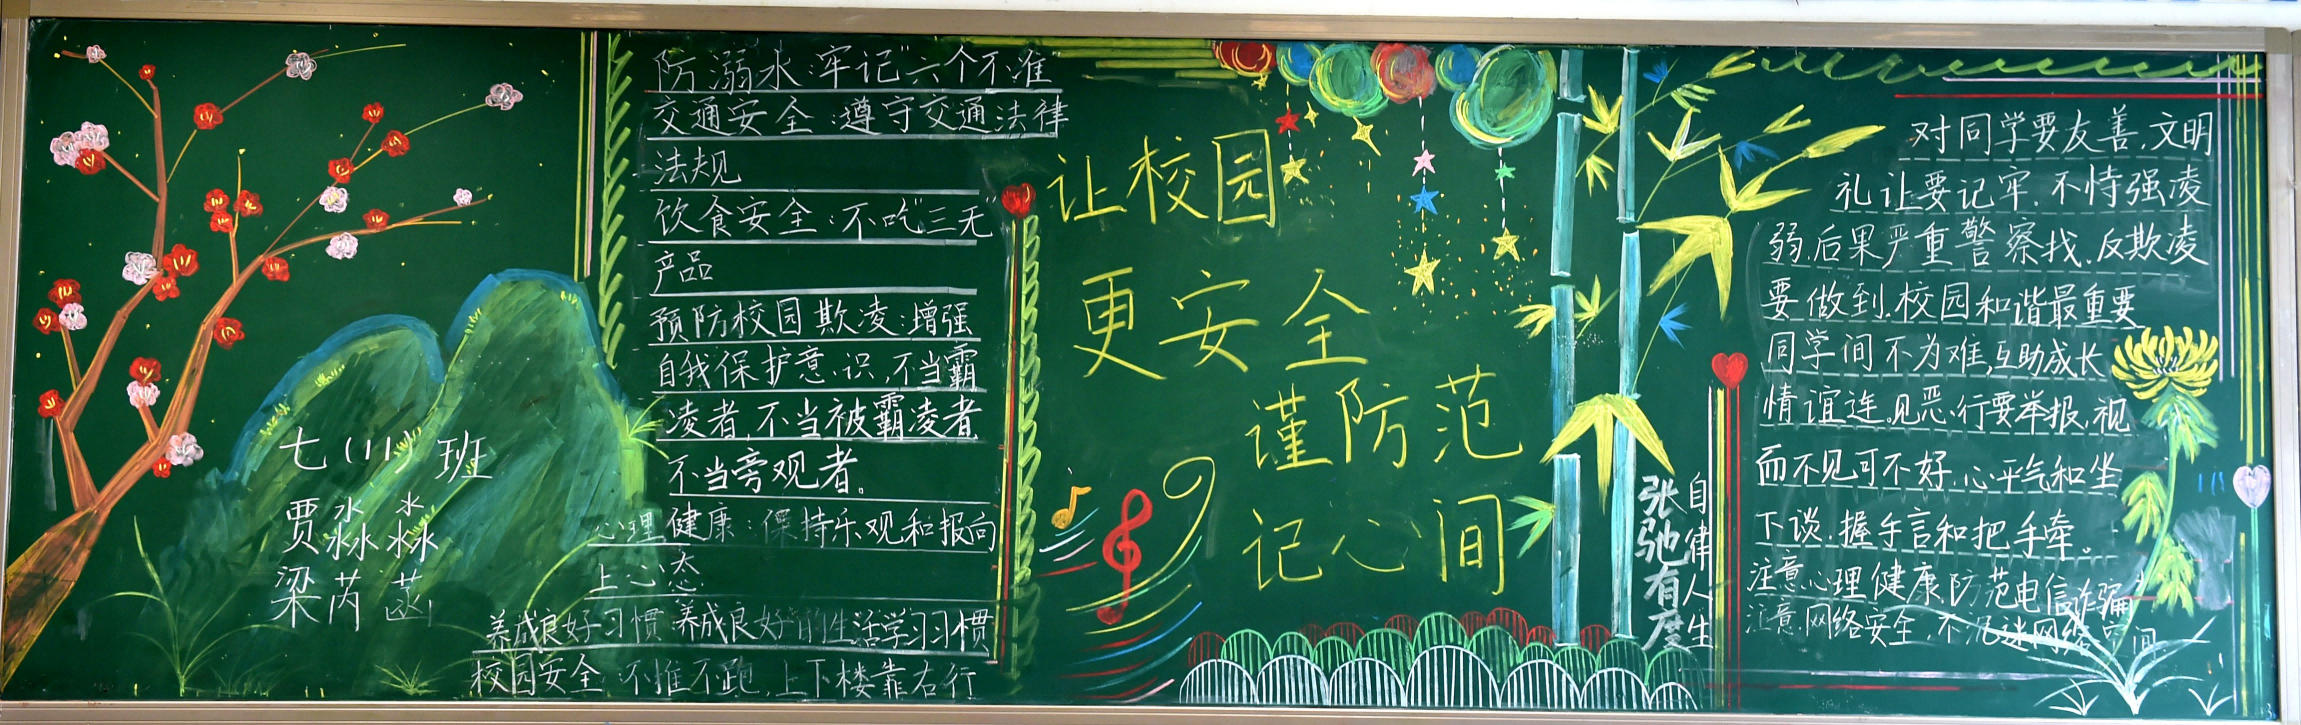 七（11）班
贾淼淼
梁芮菡
防溺水：牢记“六个不准
交通安全：遵守交通法律
法规
饮食安全：不吃“三无”
产品
预防校园欺凌：增强
自我保护意识，不当霸
凌者，不当被霸凌者，
不当旁观者。
心理健康：保持乐观和报向
上心态
养成良好习惯：养成良好的生活学习习惯
校园安全：不推不跑，上下楼靠右行
让校园
更安全
谨防范
记心间
自律人生
张弛有度
对同学要友善，文明
礼让要记牢，不恃强凌
弱，后果严重警察找，反欺凌
要做到，校园和谐最重要
同学间不为难，互助成长
情谊连，见恶行要举报，视
而不见可不好，心平气和坐
下谈，握手言和把手牵。
注意心理健康防范电信诈骗
注意网络安全，不沉迷网络空间